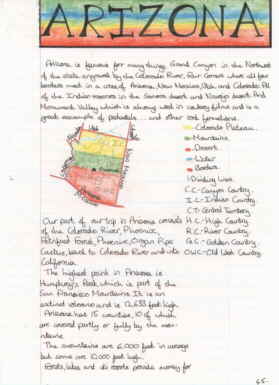 ARIZONA
Arizona is famous for many things, Grand Canyon in the Northwest
of the state engraved by the Colorado River, Four Corners where all four
borders meet in a area of Arizona, New Mexico, Utah and Colorado. All
of the Indian reserves in the Sonora desert and Navajo desert. And
Monument Valley which is always used in cowboy films and is a
great example of pedestals and other rock formations.
Colorado Plateau.
Mountains
Desert
Water
Borders
Dividing Lines
C.C- Canyon Country
I.C- Indian Country
C.T- Central Territory
H.C- High Country
R.C- River Country
G.C- Golden Country
O.W.C- Old West Country
Our part of our trip in Arizona consists
of the Colorado River, Phoenix,
Petrified Forest, Phoenix, Organ Pipe
Cactus, back to Colorado River and into
California
The highest point in Arizona is
Humphrey's Peak, which is part of the
San Francisco Mountains. It is an
extinct volcano and is 12,633 feet high.
Arizona has 15 counties, 10 of which
are covered partly or fully by the mou-
ntains.
The mountains are 6,000 feet in average
but some are 10,000 feet high.
65